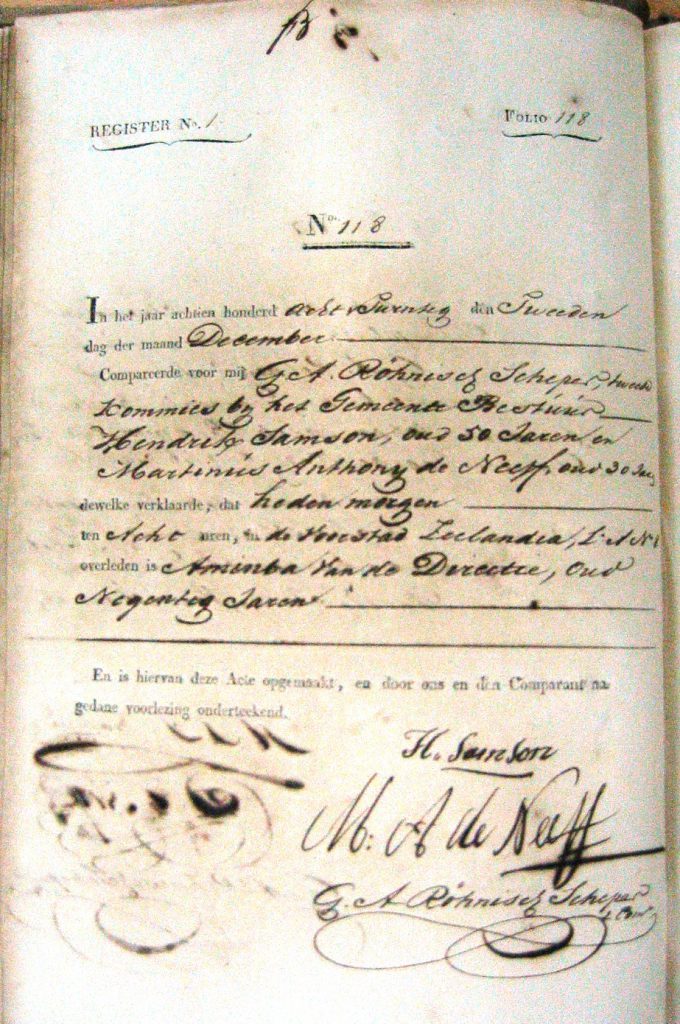 REGISTER No. 1
FOLIO 118
No. 118
In het jaar achtien honderd acht & Twentig den Tweeden
dag der maand December
Compareerde voor mij G. A. Röhnisch Scheper, tweede
Kommies by het Gemeente Bestuur
Hendrik Samson, oud 50 Jaren en
Martinus Anthony de Neeff, oud 30 Jar
dewelke verklaarde, dat heden morgen
ten Acht uren, in de Voorstad Zeelandia, La A No 1
overleden is Aminba Van de Directie, oud
Negentig Jaren
En is hiervan deze Acte opgemaakt, en door ons en den Comparant na
gedane voorlezing onderteekend.
H. Samson
M: A de Neeff
G. A Röhnisch Scheper